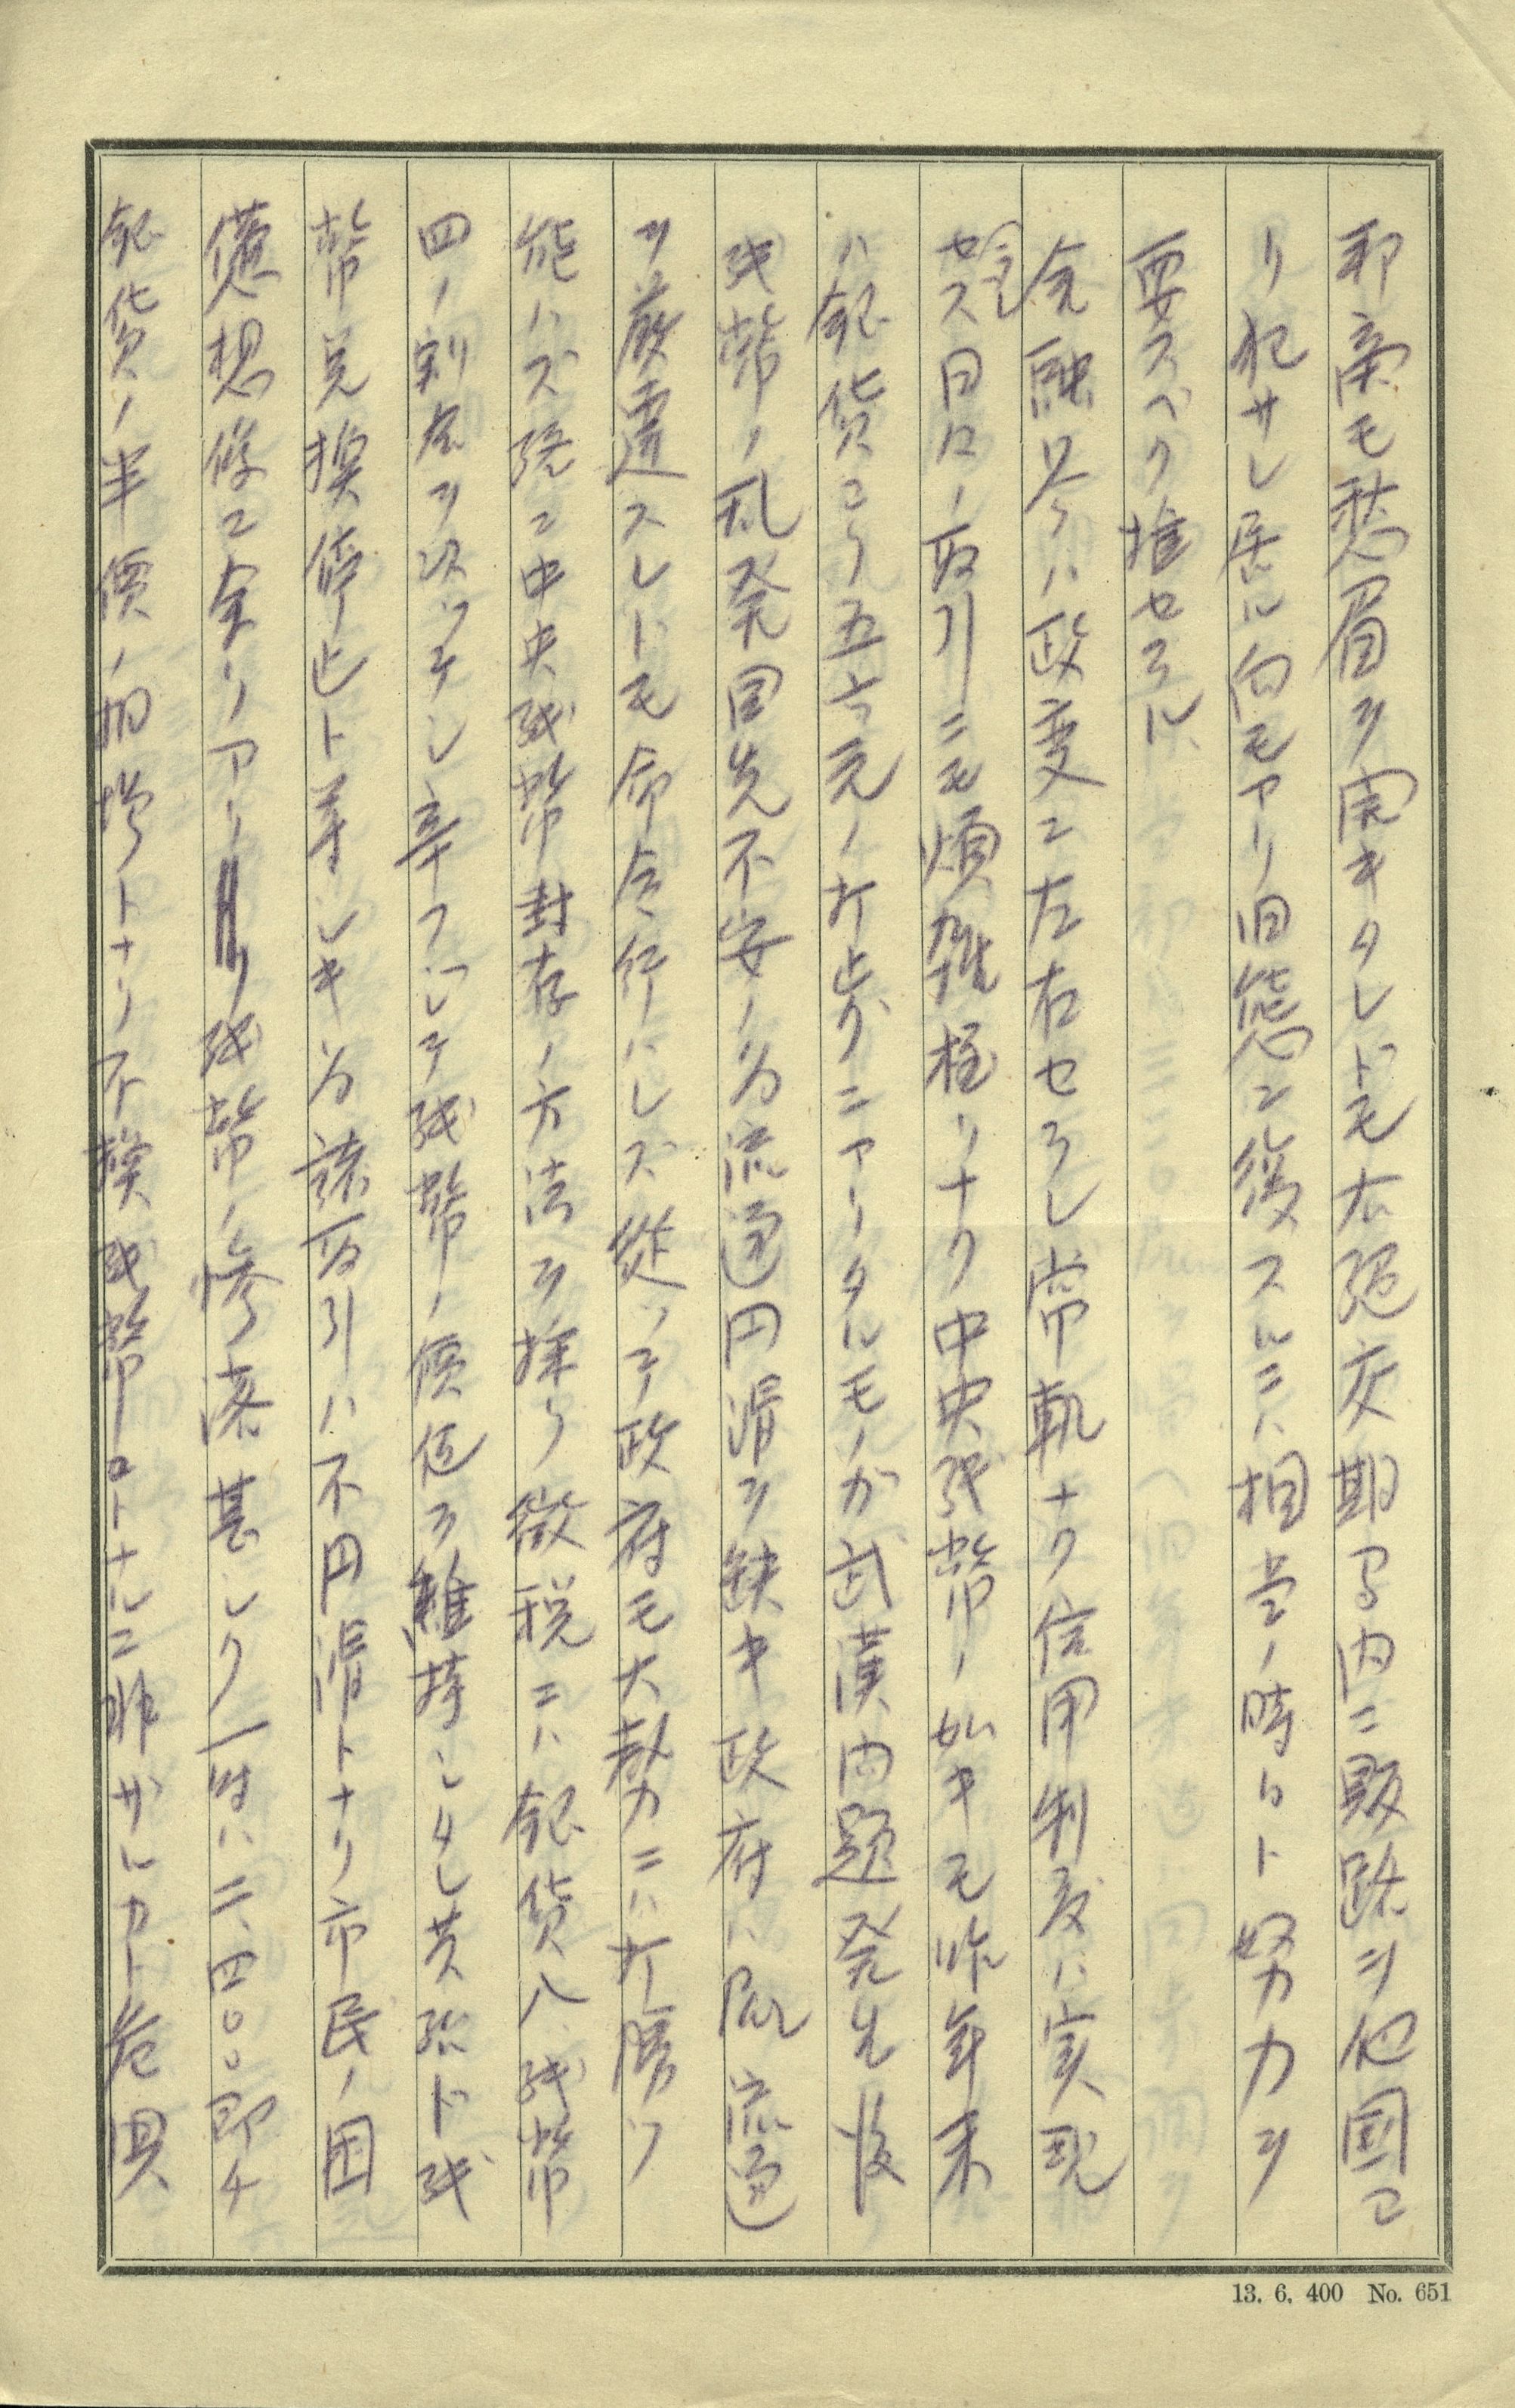 邦商モ愁眉ヲ開キタレドモ右絶交期間内ニ販路ヲ他国ヨ
リ犯サレ居ル向モアリ旧態ニ復スルニハ相当ノ時日ト努力ヲ
要スベク推セラル
金融界ハ政変ニ左右セラレ常軌ナク信用制度ハ実現
セラレス日々ノ取引ニモ煩雑極リナク中央紙幣ノ如キモ昨年末
ハ銀貨ヨリ五六元ノ打歩ニアリタルモノガ武漢問題発生後
紙幣ノ乱発国先不安ノ為流通円滑ヲ缺キ政府ハ流通
ヲ厳達スレドモ命令行ハレズ従ツテ政府モ大勢ニハ打勝ツ
能ハズ終ニ中央紙幣封存ノ方法ヲ採リ徴税ニハ銀貨八、紙幣
四ノ割合ヲ以ツテシ辛フジテ紙幣ノ価値ヲ維持シタレ共殆ド紙
幣兌換停止ト等シキ為諸取引ハ不円滑トナリ市民ノ困
憊想像ニ余リアリ紙幣ノ惨落甚シク一時ハ二、四〇〇即チ
銀貨ノ半価ノ相場トナリ不換紙幣トナルニ非ザルカト危惧
13. 6. 400 No. 651